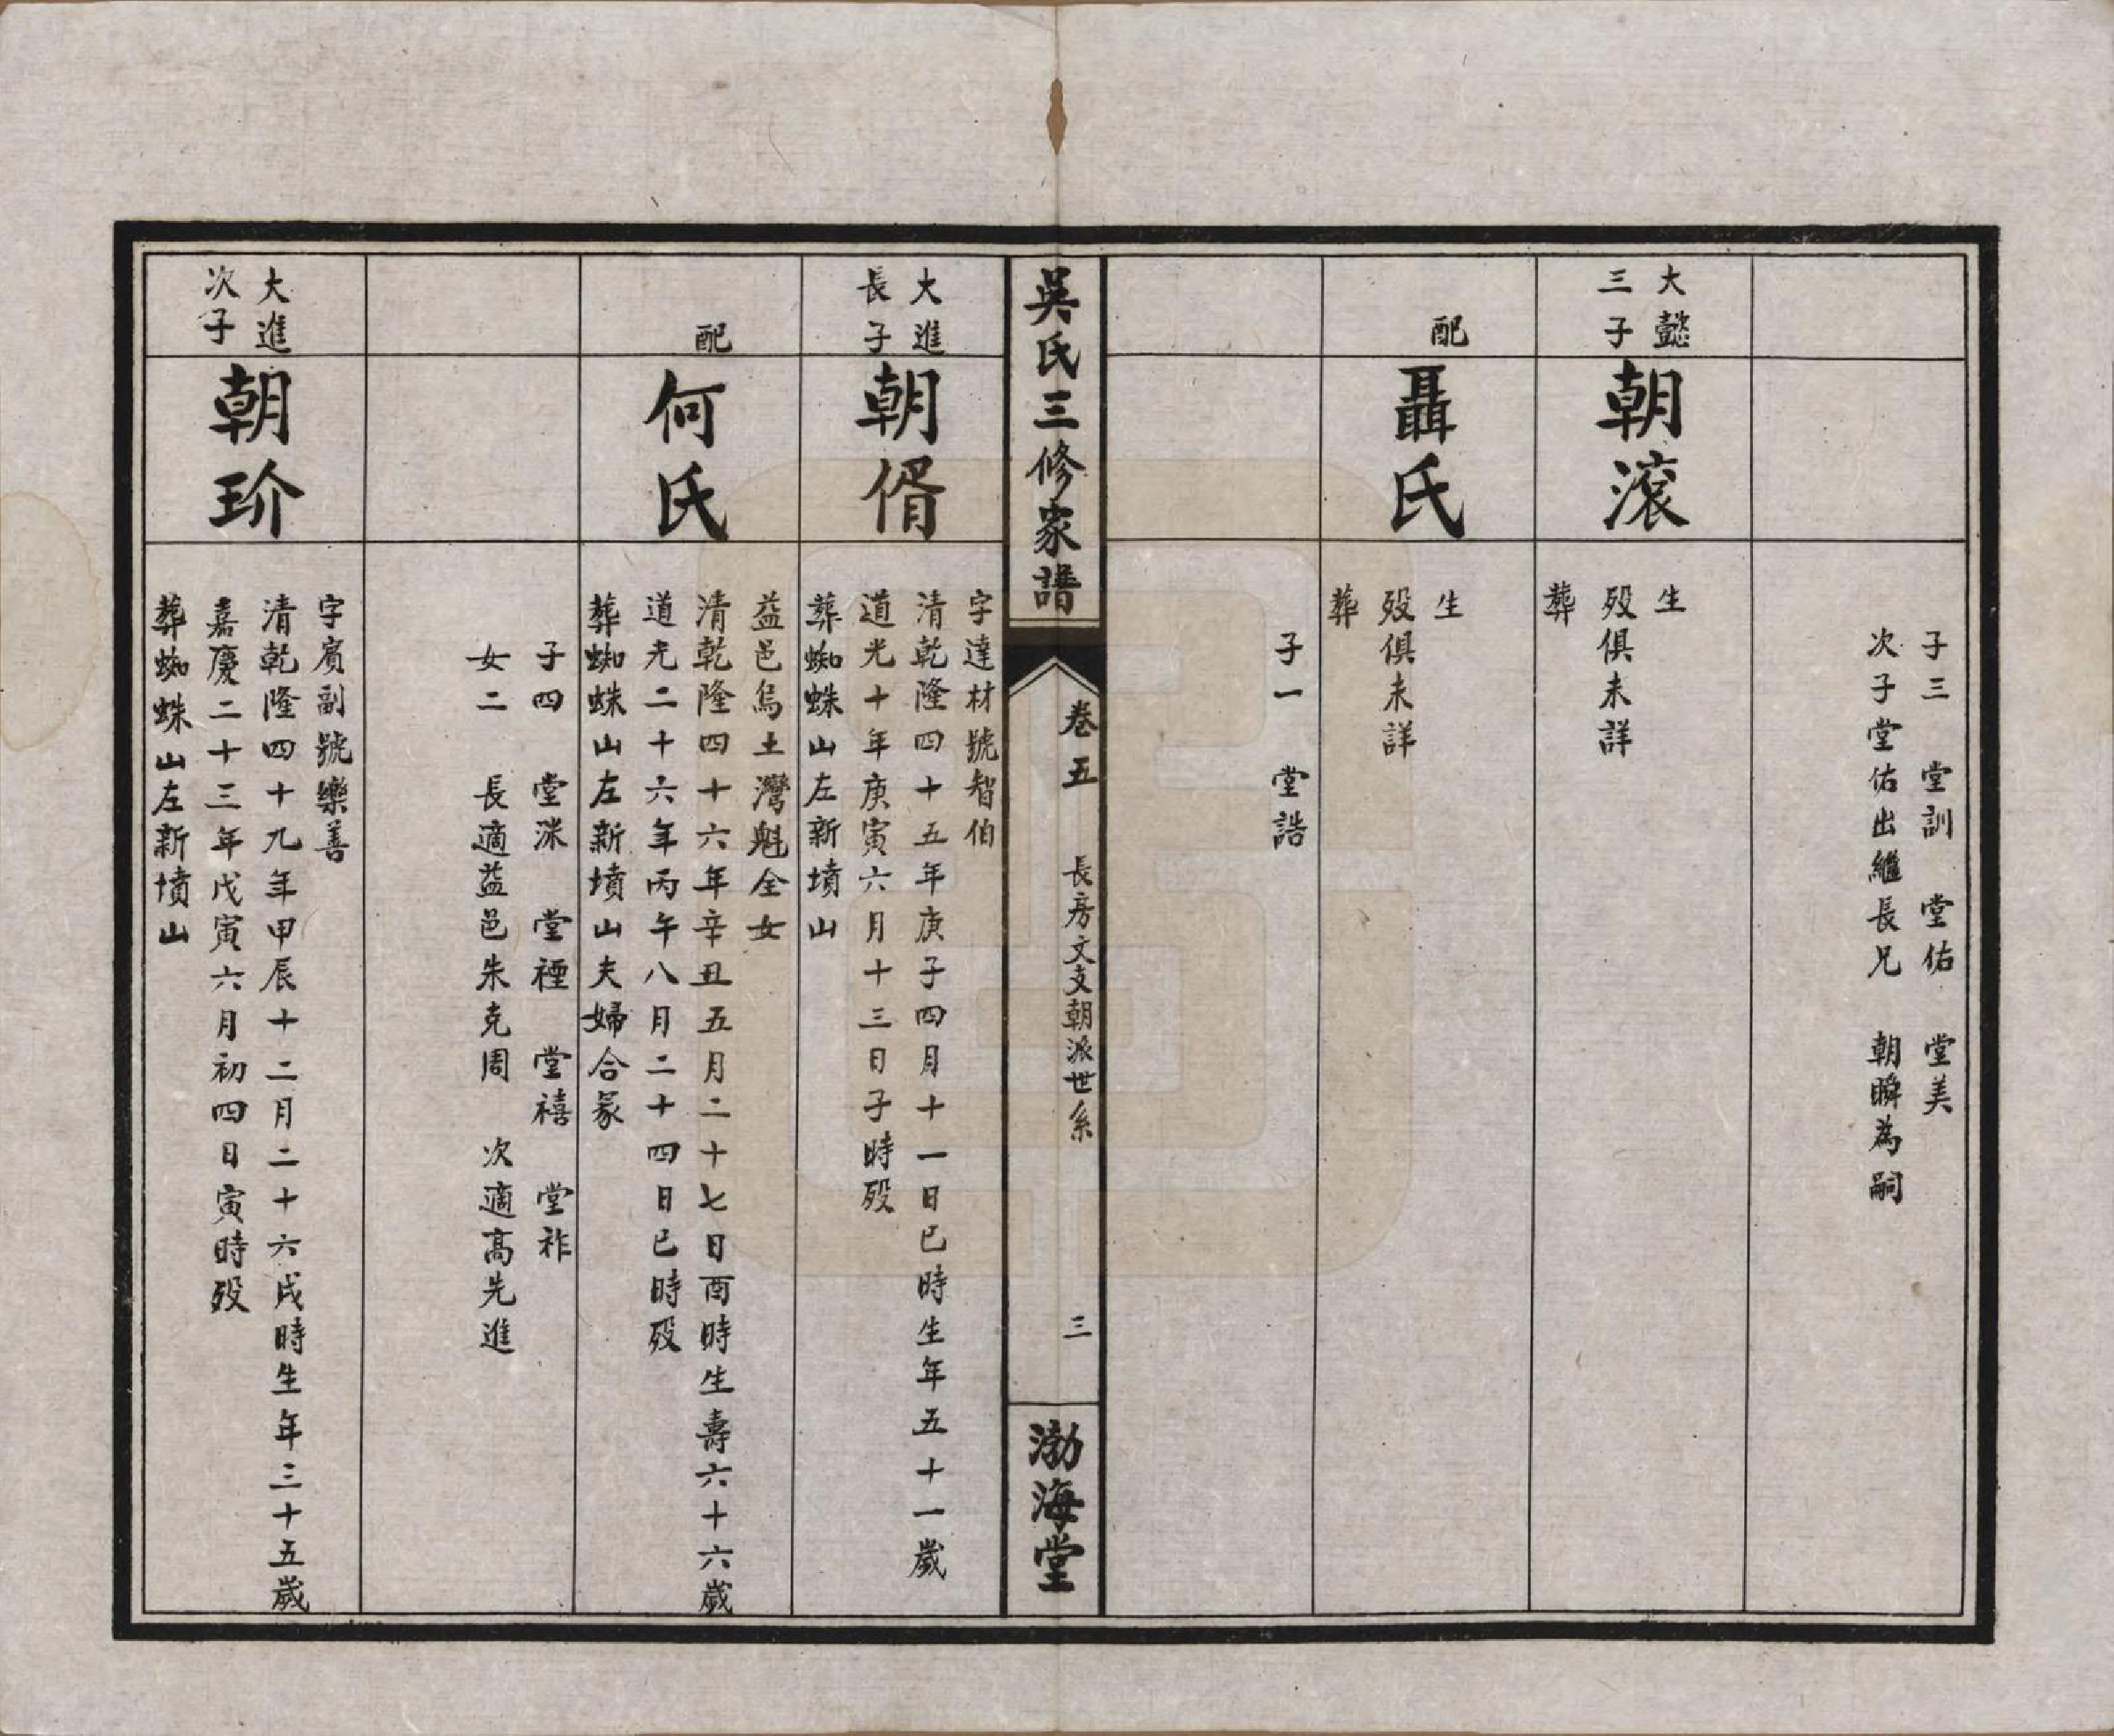 子三　堂訓　堂佑　堂美
次子堂佑出繼長兄　朝瞬為嗣
大懿
三子
朝滾
生
歿俱未詳
葬
配
聶氏
生
歿俱未詳
葬
子一　堂誥
吳氏三修家譜
卷五　長房文支朝派世系　三
渤海堂
大進
長子
朝偦
字達材號智伯
清乾隆四十五年庚子四月十一日巳時生年五十一歲
道光十年庚寅六月十三日子時歿
葬蜘蛛山左新墳山
配
何氏
益邑烏土灣魁全女
清乾隆四十六年辛丑五月二十七日酉時生壽六十六歲
道光二十六年丙午八月二十四日巳時歿
葬蜘蛛山左新墳山夫婦合冡
子四　堂洣　堂禋　堂禧　堂祚
女二　長適益邑朱克周　次適高先進
大進
次子
朝玠
字賔副號樂善
清乾隆四十九年甲辰十二月二十六戌時生年三十五歲
嘉慶二十三年戊寅六月初四日寅時歿
葬蜘蛛山左新墳山